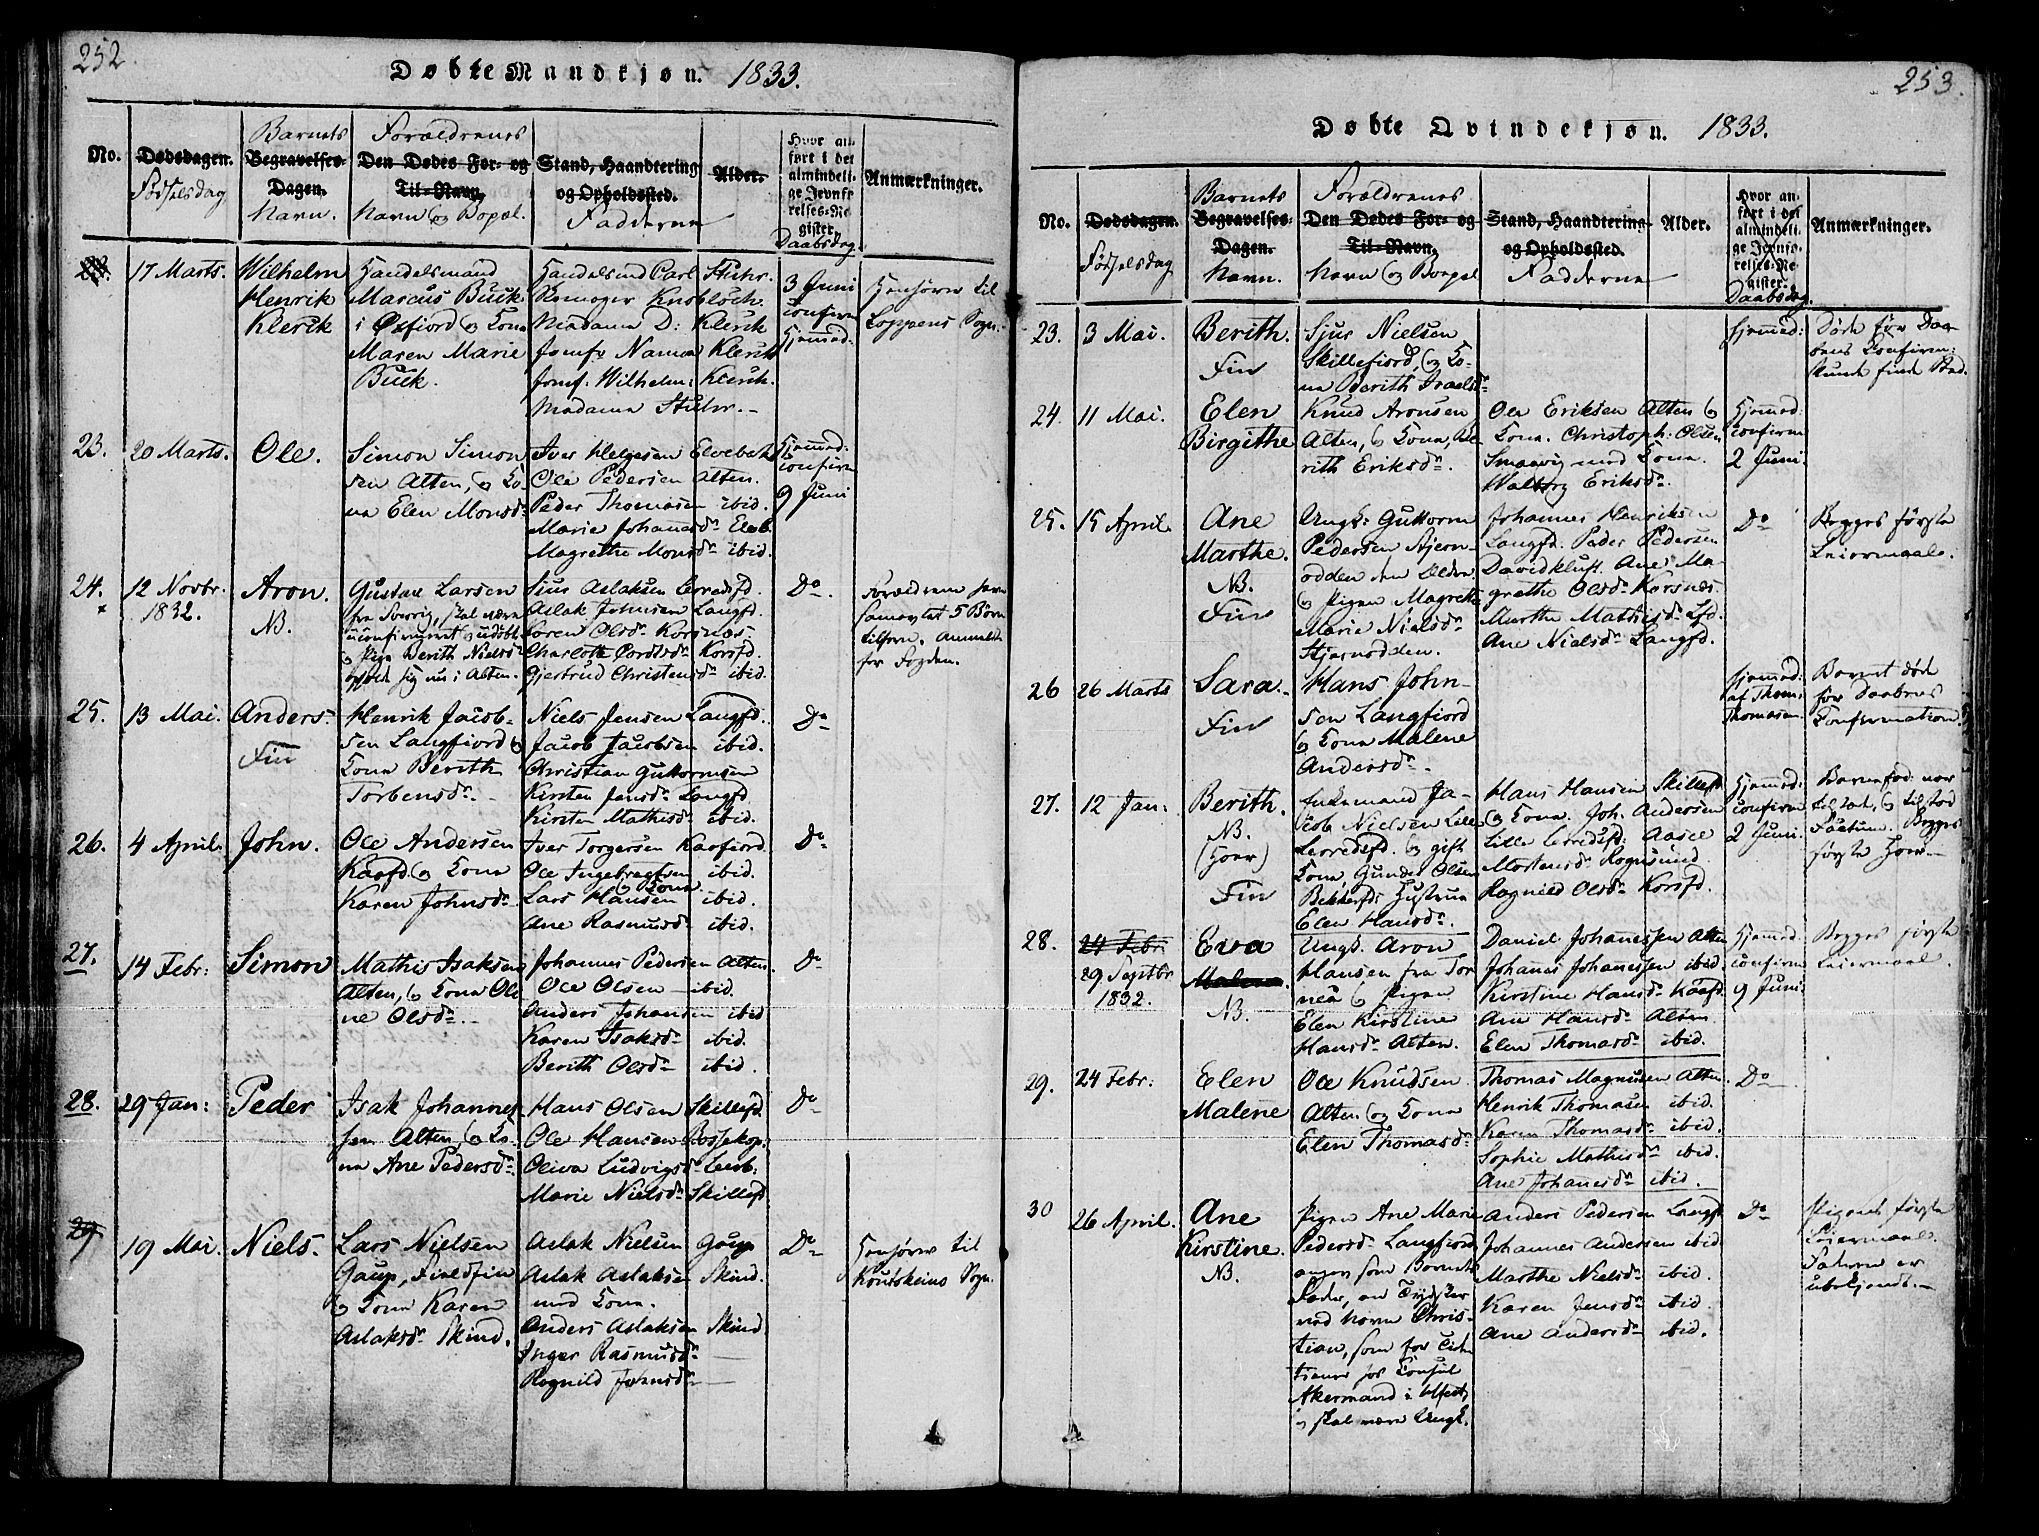 252.
Døbte Mandkjøn. 1833.
No.
Dødsdagen.
Fødselsdag.
Barnets
Begravelses-
Dagen.
Navn.
Forældrenes
Den Dødes For- og
Til-Navn,
Navn og Bopæl.
Stand, Haandtering
og Opholdssted.
Fadderne
Alder.
Hvor an-
ført i det
almindeli-
ge Jevnfø-
relses-Re-
gister.
Daabsdag.
Anmærkninger.
17 Marts.
Wilhelm
Henrik
Klerik
Handelsmand
Marcus Buck
i Øxfiord og Kona
Maren Marie
Buck.
Handelsmd Carl Stuhr.
Knobloch.
Madame D: Klerik
Jomfr Nanna Klerik
Jomf: Wilhelm: Klerik.
Madame Stuhr.
3 Juni
confirm
Hjemmed.
Henhører til
Loppens Sogn.
23.
20 Marts.
Ole.
Simon Simon
sen Alten, og Ko-
na Elen Monsdr
Iver Helgesen Elvebak
Ole Pedersen Alten.
Peder Thomasen ibid.
Marie Johansdr Elvb.
Magrethe Monsdr ibid.
Hjemmed:
confirm
9 Juni
24.
12 Novbr.
1832.
Aron.
NB.
Gustav Larsen
fra Sverrig, skal være
uconfirmeret og udøbt
og Pige Berith Nielsdr
opholde sig nu i Alten.
Sius Aslaksen Lerredsfd.
Aslak Johnsen Langfd.
Soren Olsdr Korsnæs.
Charlotte Pordsdr Korsfd.
Gjertrud Christensdr ibid.
Do.
Forældrene have
sammenavlet 5 Børn
tilforn. Anmeldt
for Fogden.
25.
13 Mai.
Anders
Fin
Henrik Jacob-
sen Langfiord og
Kona Berith
Torbensdr.
Niels Jensen Langfd.
Jacob Jacobsen ibid.
Christian Guttormsen
Kirsten Jensdr Langfd
Kirsten Mathisdr ibid.
Do
26.
4 April.
John.
Ole Andersen
Kaafd. og Kona
Karen Johnsdr
Iver Torgersen Kaafiord.
Ole Ingebregtsen ibid.
Lars Hansen og Kona ibid.
Ane Rasmusdr ibid.
Do
27.
14 Febr:
Simon
Mathis Isaksen
Alten, og Kona Ole
ne Olsdr.
Johannes Pedersen Alten.
Ole Olsen ibid.
Anders Johansen ibid
Karen Isaksdr ibid.
Berith Olsdr ibid.
Do
28.
29 Jan:
Peder
Isak Johannes
sen Alten, og Ko-
na Ane Pedersdr
Hans Olsen Skillefd.
Ole Hansen Bossekop.
Oliva Ludvigsdr Lerb.
Marie Nielsdr Skillefd.
Do
29
19 Mai.
Niels.
Lars Nielsen
Gaup, Fieldfin
og Kona Karen
Aslaksdr Skind.
Aslak Nielsen Gaup
Aslak Aslaksen Skind.
med Kona.
Anders Aslaksen Skind
Inger Rasmusdr
Rognild Johnsdr
Do
Henhører til
Koutokeins Sogn.
253.
Døbte Qvindekjøn. 1833.
No.
Dødsdagen.
Fødselsdag
Barnets
Begravelses-
Dagen.
Navn.
Forældrenes
Den Dødes For- og
Til-Navn,
Navn og Bopæl
Stand, Haandtering
og Opholdssted.
Fadderne
Alder.
Hvor an-
ført i det
almindeli-
ge Jevnfø-
relses-Re-
gister.
Daabsdag.
Anmærkninger.
23.
3 Mai.
Berith.
Fin
Sjur Nielsen
Skillefiord, og Ko-
na Berith Israelsdr
Hjemmed:
Døde før Daa-
bens Confirm:
kunde finde Sted.
24.
11 Mai.
Elen
Birgithe
Knud Aronsen
Alten, og Kona, Be
rith Eriksdr.
Ole Eriksen Alten og
Kona. Christoph: Olsen
Smaavig med Kona.
Walborg Eriksdr.
Hjemmed:
confirm
2 Juni.
25.
15 April.
Ane
Marthe.
NB.
Fin
Ungk: Guttorm
Pedersen Stjern-
odden den Ældre
og Pigen Magrethe
Marie Nielsdr
Stjernodden.
Johannes Henriksen
Langfd. Peder Pedersen
Davidkluft. Ane Ma-
grethe Olsdr Korsnæs.
Marthe Mathisdr Lfd.
Ane Nielsdr Langfd.
Do
Begges første
Leiermaal.
26
26 Marts
Sara.
Fin
Hans John-
sen Langfiord
og Kona Malene
Andersdr.
Hjemmed:
af Thom:
Thomasen.
Barnet døde
før Daabens
Confirmation.
27.
12 Jan:
Berith.
NB.
(Hoer)
Fin
Enkemand Ja-
cob Nielsen Lille
Lerredsfd. og gift
Kona, Gunder Olsen
Bekkerfds Hustrue
Elen Hansdr.
Hans Hansen Skillefd
og Kona. Joh. Andersen
Lille Lerredsfd: Aasel
Mortensdr Rognsund
Ragnild Olsdr Korsfd.
Hjemmed:
confirm
2 Juni.
Factum. Begges
første Hoer
28.
24 Febr:
29 Septbr
1832.
Eva
Malene.
NB.
Ungk. Aron
Hansen fra Tor
neå og Pigen
Elen Kirstine
Hansdr Alten.
Daniel Johanessen Alten
Johanes Johanessen ibid.
Kirstine Hansdr Kaafd.
Ane Hansdr Alten
Elen Thomasdr ibid.
Hjemmed:
confirm
9 Juni
Begges første
Leiermaal.
29.
24 Febr:
Elen
Malene
Ole Knudsen
Alten og Kona
Elen Thomasdr
Thomas Magnusen Alten
Henrik Thomasen ibid.
Karen Thomasdr ibid.
Sophie Mathisdr ibid.
Ane Johanesdr ibid.
Do
30
26 April.
Ane
Kirstine.
NB.
Pigen Ane Marie
Pedersdr Langfiord
angav som Barnets
Fader, en Tydsker
ved Navn Chris-
tian, som for
tiener hos Consul
Akermand i
og skal være Ungk.
Anders Pedersen Langfd
Johannes Andersen ibid
Marthe Nielsdr ibid.
Karen Jensdr ibid.
Ane Andersdr ibid.
Do
Pigens første
Leiermaal.
Faderen er
ubekjendt.